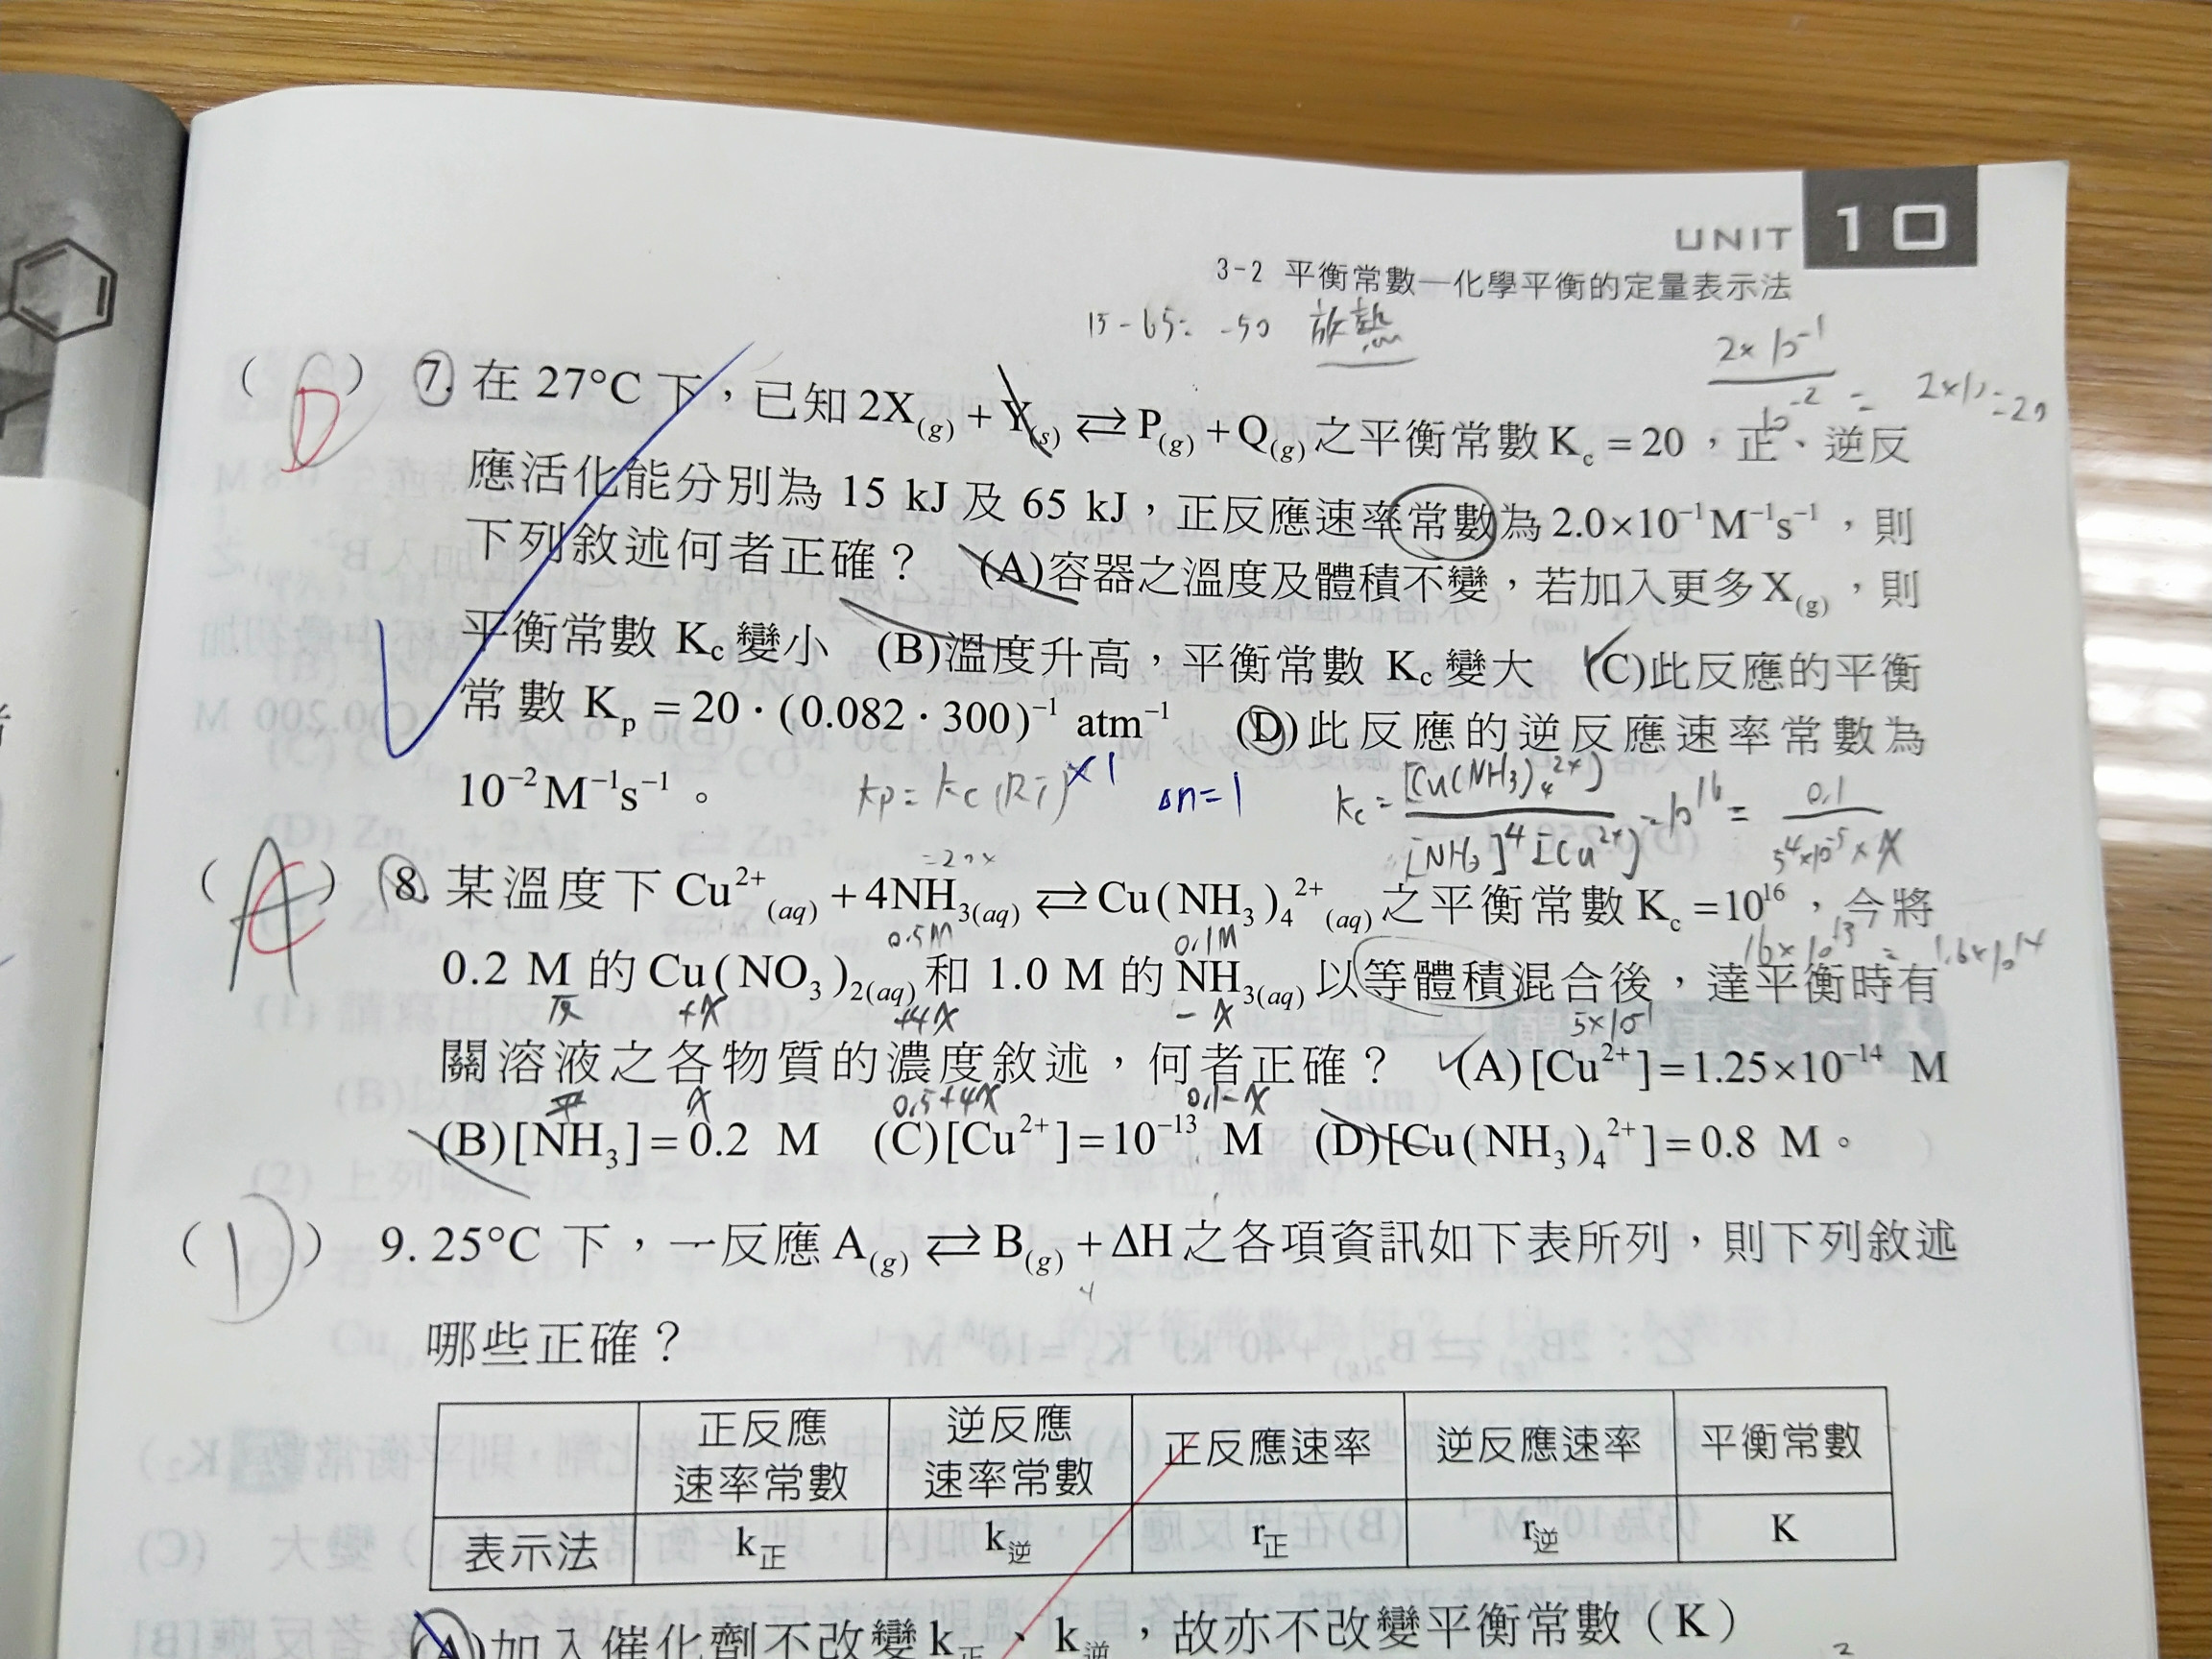 UNIT 10
3-2 平衡常數—化學平衡的定量表示法
15-65= -50 放熱
2×10⁻¹ / 10⁻² = 2×10=20
( D ) 7. 在 27°C 下，已知 2X(g) + Y(s) ⇄ P(g) + Q(g) 之平衡常數 Kc = 20，正、逆反
應活化能分別為 15 kJ 及 65 kJ，正反應速率常數為 2.0×10⁻¹ M⁻¹s⁻¹，則
下列敘述何者正確？ (A)容器之溫度及體積不變，若加入更多 X(g)，則
平衡常數 Kc 變小 (B)溫度升高，平衡常數 Kc 變大 (C)此反應的平衡
常數 Kp = 20．(0.082．300)⁻¹ atm⁻¹ (D)此反應的逆反應速率常數為
10⁻² M⁻¹s⁻¹。
kp = kc (RT) ×1 Δn=1
kc = [Cu(NH3)4²⁺] / [NH3]⁴[Cu²⁺] = 10¹⁶ = 0.1 / 5⁴×10⁻⁵×X
( C ) 8. 某溫度下 Cu²⁺(aq) + 4NH3(aq) ⇄ Cu(NH3)4²⁺(aq) 之平衡常數 Kc = 10¹⁶，今將
0.5M 0.1M 16×10¹³ = 1.6×10¹⁴
0.2 M 的 Cu(NO3)2(aq) 和 1.0 M 的 NH3(aq) 以等體積混合後，達平衡時有
反 +X +4X -X 5×10⁻¹
關溶液之各物質的濃度敘述，何者正確？ (A)[Cu²⁺]=1.25×10⁻¹⁴ M
平 X 0.5+4X 0.1-X
(B)[NH3]=0.2 M (C)[Cu²⁺]=10⁻¹³ M (D)[Cu(NH3)4²⁺]=0.8 M。
( D ) 9. 25°C 下，一反應 A(g) ⇄ B(g) + ΔH 之各項資訊如下表所列，則下列敘述
哪些正確？
正反應速率常數 逆反應速率常數 正反應速率 逆反應速率 平衡常數
表示法 k正 k逆 r正 r逆 K
(A)加入催化劑不改變 k正、k逆，故亦不改變平衡常數（K）